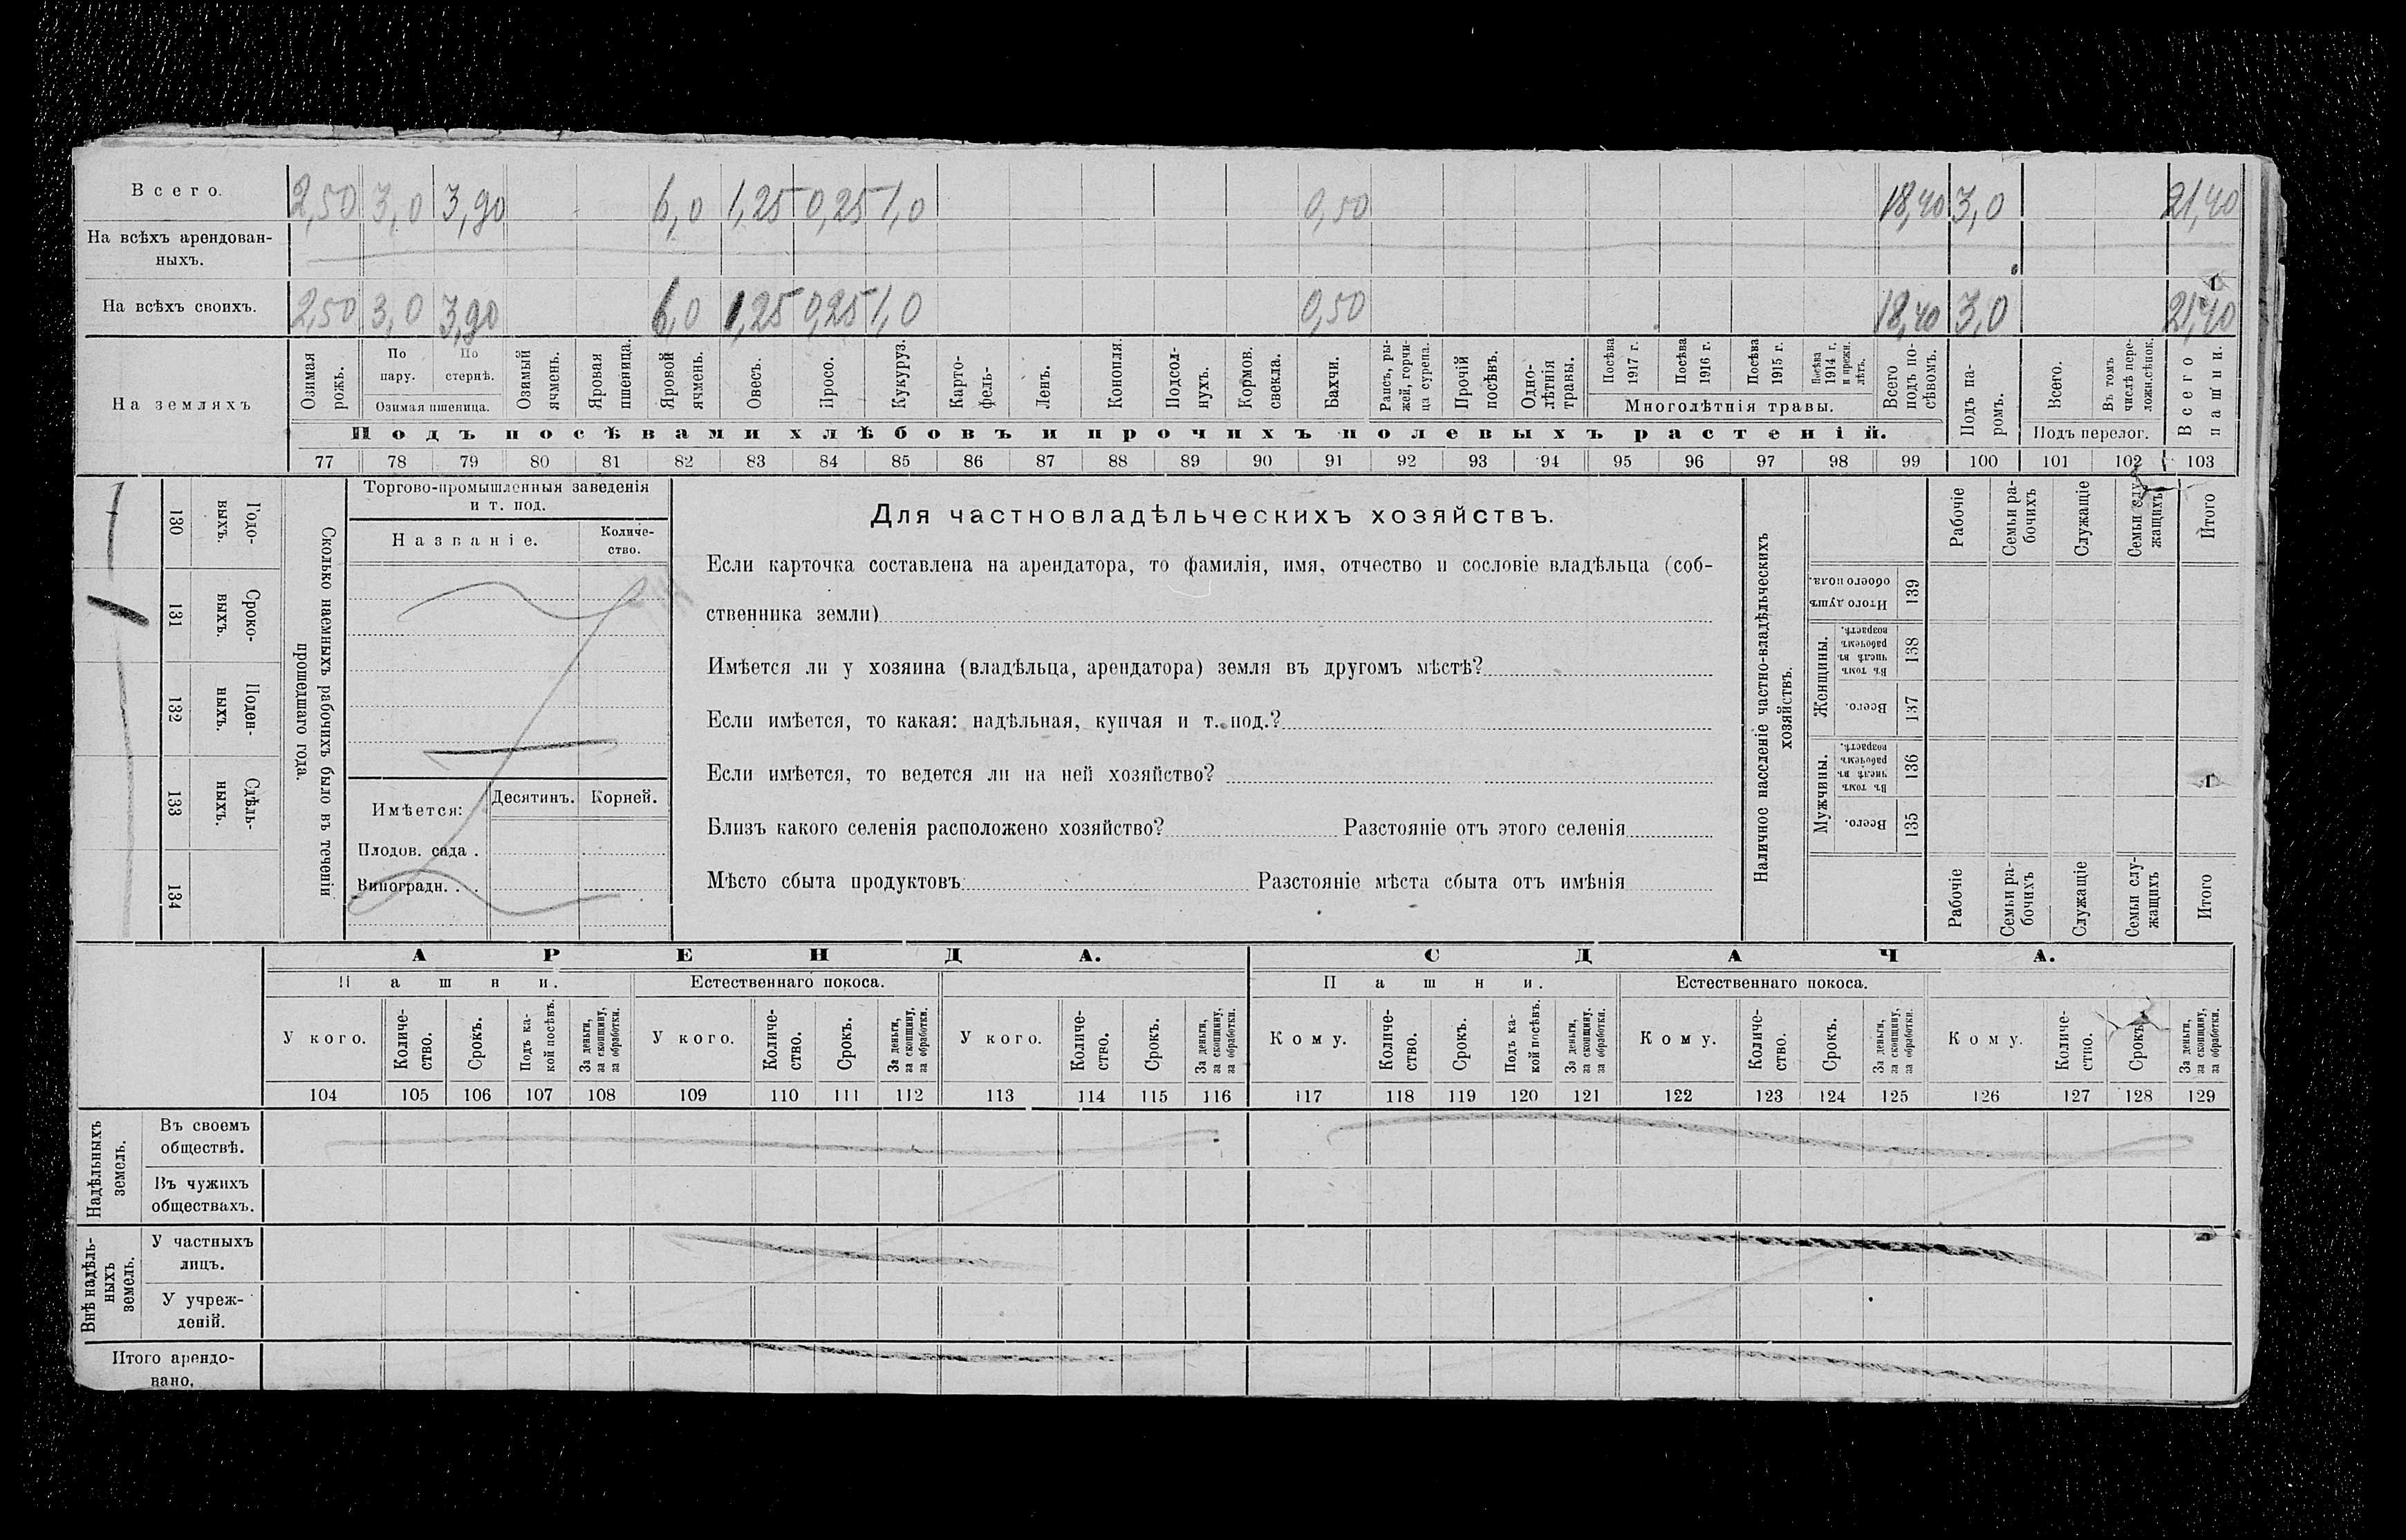 Всего. 2,50 3,0 3,90 6,0 1,25 0,25 1,0 0,50 18,40 3,0 21,40
На всѣхъ арендован-
ныхъ.
На всѣхъ своихъ. 2,50 3,0 3,90 6,0 1,25 0,25 1,0 0,50 18,40 3,0 21,40
На земляхъ
Озимая рожь.
По пару.
По стернѣ.
Озимая пшеница.
Озимый ячмень.
Яровая пшеница.
Яровой ячмень.
Овесъ.
Просо.
Кукуруз.
Карто-
фель-
Ленъ.
Конопля.
Подсол-
нухъ.
Кормов. свекла.
Бахчи.
Рапсъ, ры-
жей, горчи-
ца сурепа.
Прочій посѣвъ.
Одно-
лѣтнія травы.
Посѣва 1917 г.
Посѣва 1916 г.
Посѣва 1915 г.
Посѣва 1914 г. и прежн. лѣтъ.
Многолѣтнія травы.
Всего подъ по-
сѣвомъ.
Подъ па-
ромъ.
Всего.
Въ томъ числѣ пере-
ложн.сѣнок.
Подъ перелог.
Всего пашни.
Подъ посѣвами хлѣбовъ и прочихъ полевыхъ растеній.
77 78 79 80 81 82 83 84 85 86 87 88 89 90 91 92 93 94 95 96 97 98 99 100 101 102 103
Сколько наемныхъ рабочихъ было въ теченіи
прошедшаго года.
Годо-
выхъ.
130
1
Сроко-
выхъ.
131
Поден-
ныхъ.
132
Сдѣль-
ныхъ.
133
134
Торгово-промышленныя заведенія
и т. под.
Названіе.
Количе-
ство.
Имѣется: Десятинъ. Корней.
Плодов. сада .
Виноградн. . .
Для частновладѣльческихъ хозяйствъ.
Если карточка составлена на арендатора, то фамилія, имя, отчество и сословіе владѣльца (соб-
ственника земли)
Имѣется ли у хозяина (владѣльца, арендатора) земля въ другомъ мѣстѣ?
Если имѣется, то какая: надѣльная, купчая и т. под.?
Если имѣется, то ведется ли на ней хозяйство?
Близъ какого селенія расположено хозяйство? Разстояніе отъ этого селенія
Мѣсто сбыта продуктовъ Разстояніе мѣста сбыта отъ имѣнія
Наличное населеніе частно-владѣльческихъ
хозяйствъ.
Рабочіе
Семьи ра-
бочихъ
Служащіе
Семьи слу-
жащихъ
Итого
Итого душъ обоего пола.
139
Женщины.
Въ томъ числѣ въ рабочемъ возрастѣ.
138
Всего.
137
Мужчины.
Въ томъ числѣ въ рабочемъ возрастѣ.
136
Всего.
135
Рабочіе
Семьи ра-
бочихъ
Служащіе
Семьи слу-
жащихъ
Итого
АРЕНДА. СДАЧА.
Пашни. Естественнаго покоса. Пашни. Естественнаго покоса.
У кого.
Количе-
ство.
Срокъ.
Подъ ка-
кой посѣвъ.
За деньги,
за скопщину,
за обработки.
У кого.
Количе-
ство.
Срокъ.
За деньги,
за скопщину,
за обработки.
У кого.
Количе-
ство.
Срокъ.
За деньги,
за скопщину,
за обработки.
Кому.
Количе-
ство.
Срокъ.
Подъ ка-
кой посѣвъ.
За деньги,
за скопщину,
за обработки.
Кому.
Количе-
ство.
Срокъ.
За деньги,
за скопщину,
за обработки.
Кому.
Количе-
ство.
Срокъ.
За деньги,
за скопщину,
за обработки.
104 105 106 107 108 109 110 111 112 113 114 115 116 117 118 119 120 121 122 123 124 125 126 127 128 129
Надѣльныхъ
земель.
Въ своемъ
обществѣ.
Въ чужихъ
обществахъ.
Внѣ надѣль-
ныхъ
земель.
У частныхъ
лицъ.
У учреж-
деній.
Итого арендо-
вано.